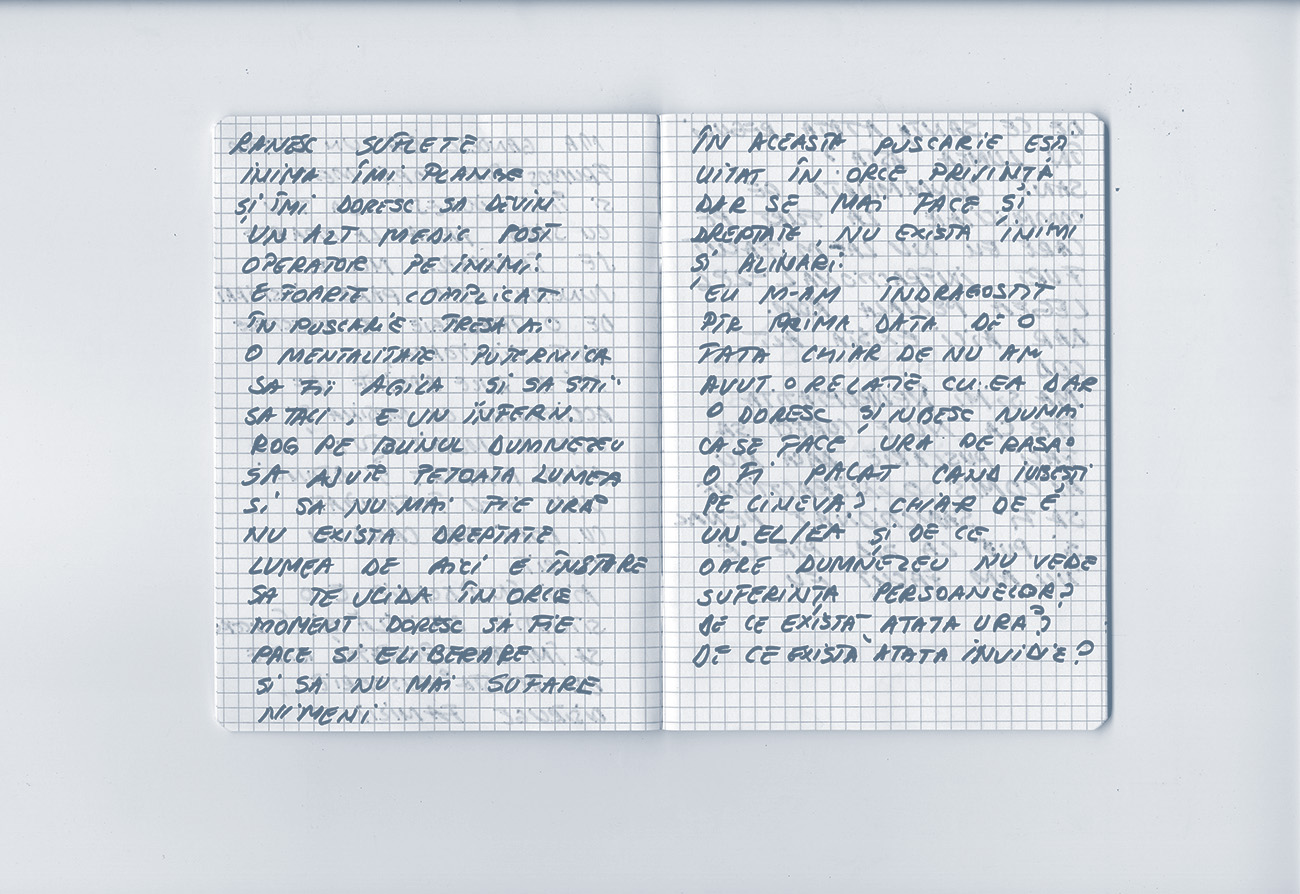 RANESC SUFLETE
INIMA ÎMI PLANGE
ȘI ÎMI DORESC SA DEVIN
UN ALT MEDIC POST
OPERATOR PE INIMI!
E FOARTE COMPLICAT
ÎN PUSCARIE TREB AI
O MENTALITATE PUTERNICA
SA FII AGILA SI SA STII
SA TACI, E UN INFERN.
ROG PE BUNUL DUMNEZEU
SA AJUTE PE TOATA LUMEA
SI SA NU MAI FIE URA
NU EXISTA DREPTATE
LUMEA DE AICI E ÎNSTARE
SA TE UCIDA ÎN ORCE
MOMENT DORESC SA FIE
PACE SI ELIBERARE
SI SA NU MAI SUFARE
NIMENI
ÎN ACEASTA PUSCARIE ESTI
UITAT ÎN ORCE PRIVINȚĂ
DAR SE MAI FACE ȘI
DREPTATE, NU EXISTA INIMI
ȘI ALINARI.
EU M-AM ÎNDRAGOSTIT
PTR PRIMA DATA DE O
FATA CHIAR DE NU AM
AVUT O RELATIE CU EA DAR
O DORESC ȘI IUBESC NUMAI
CA SE FACE URA DE RASA.
O FI PACAT CAND IUBESTI
PE CINEVA? CHIAR DE E
UN EL/EA ȘI DE CE
OARE DUMNEZEU NU VEDE
SUFERINȚA PERSOANELOR?
DE CE EXISTA ATATA URA?
DE CE EXISTA ATATA INVIDIE?